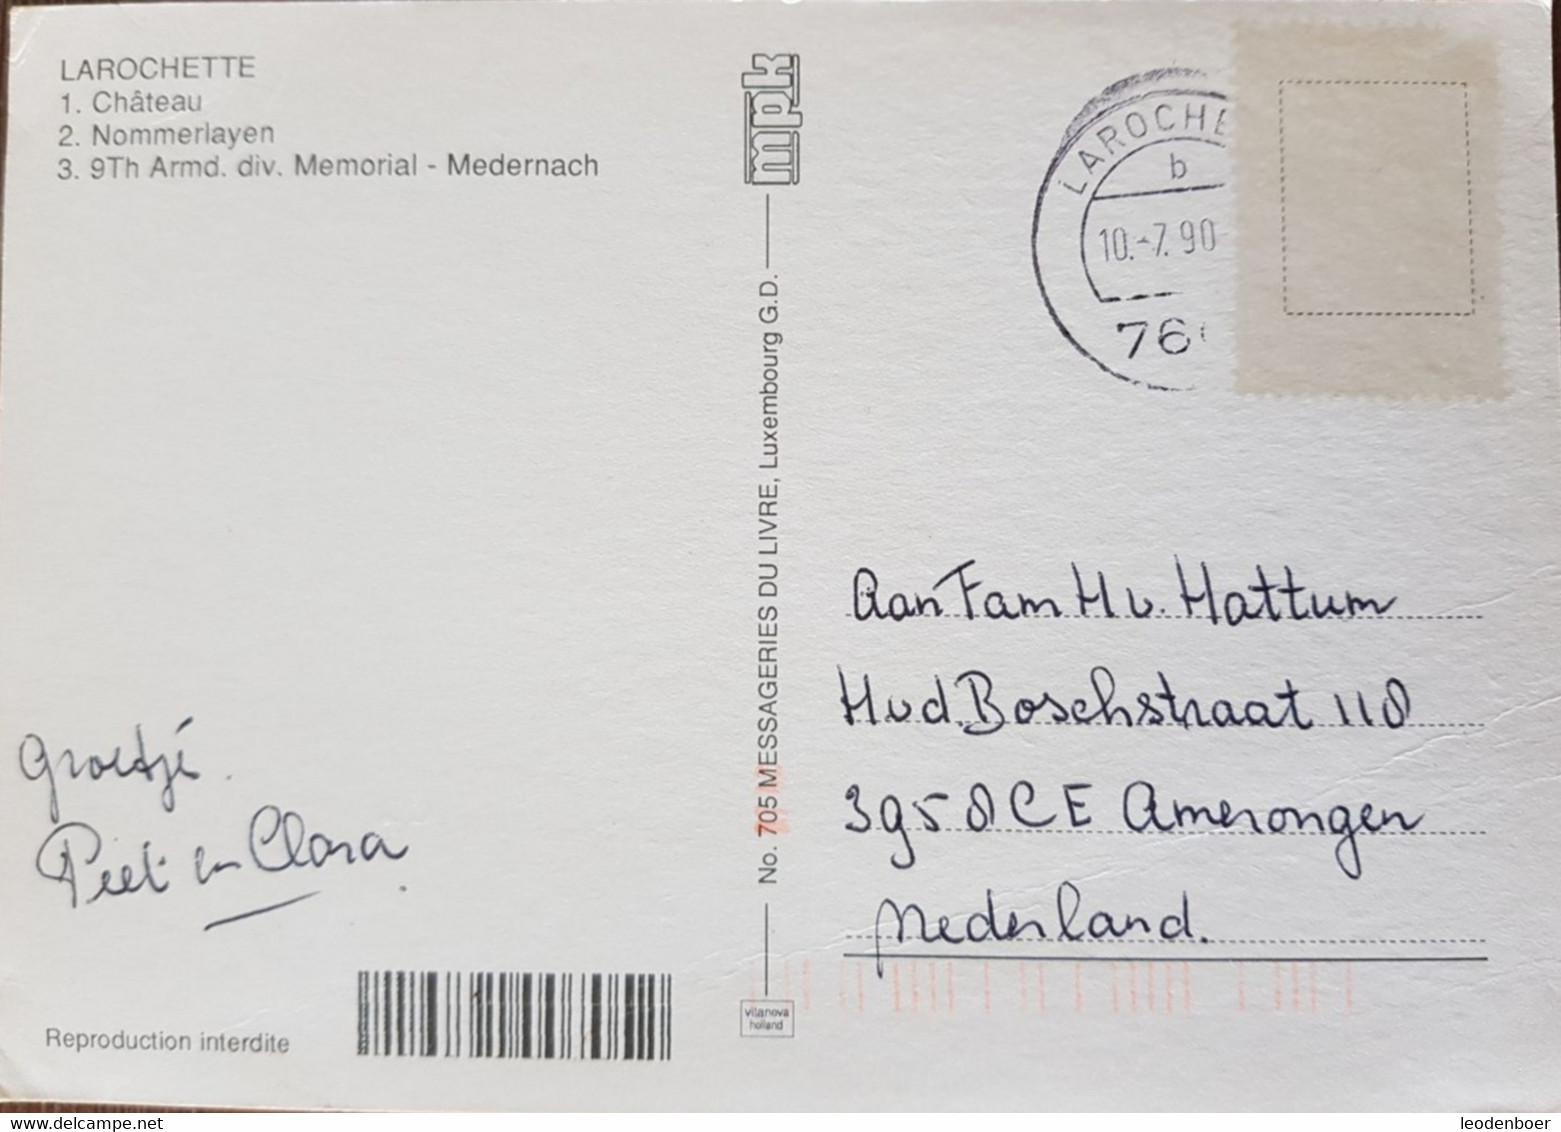 LAROCHETTE
1. Château
2. Nommerlayen
3. 9Th Armd. div. Memorial - Medernach
mpk
No. 705 MESSAGERIES DU LIVRE, Luxembourg G.D.
LAROCHE
b
10.-7.90
76
Aan Fam H v. Hattum
H v d. Boschstraat 118
3958 CE Amerongen
Nederland.
groetjes.
Piet en Clara
Reproduction interdite
vitanova
holland
delcampe.net
leodenboer